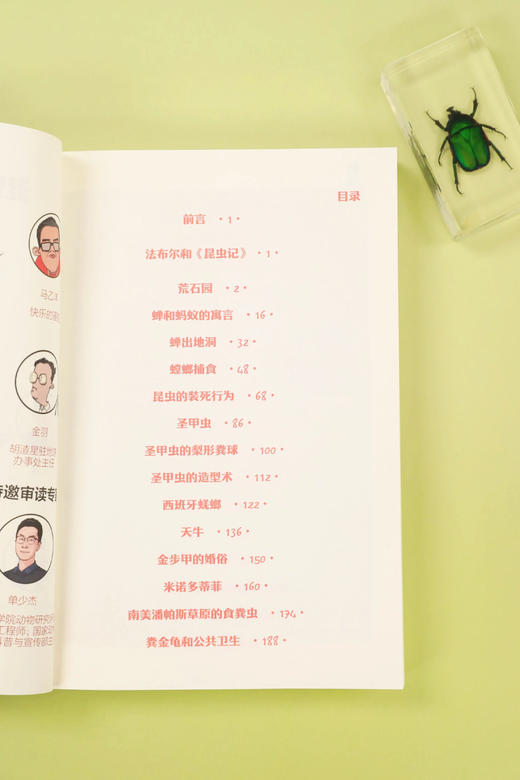 马乙
快乐的
金羽
胡渣星驻地
办事处主任
邀审读专
单少杰
学院动物研究
工程师，国家动
科普与宣传部主
目录
前言 ·1·
法布尔和《昆虫记》 ·1·
荒石园 ·2·
蝉和蚂蚁的寓言 ·16·
蝉出地洞 ·32·
螳螂捕食 ·48·
昆虫的装死行为 ·68·
圣甲虫 ·86·
圣甲虫的梨形粪球 ·100·
圣甲虫的造型术 ·112·
西班牙蜣螂 ·122·
天牛 ·136·
金步甲的婚俗 ·150·
米诺多蒂菲 ·160·
南美潘帕斯草原的食粪虫 ·174·
粪金龟和公共卫生 ·188·